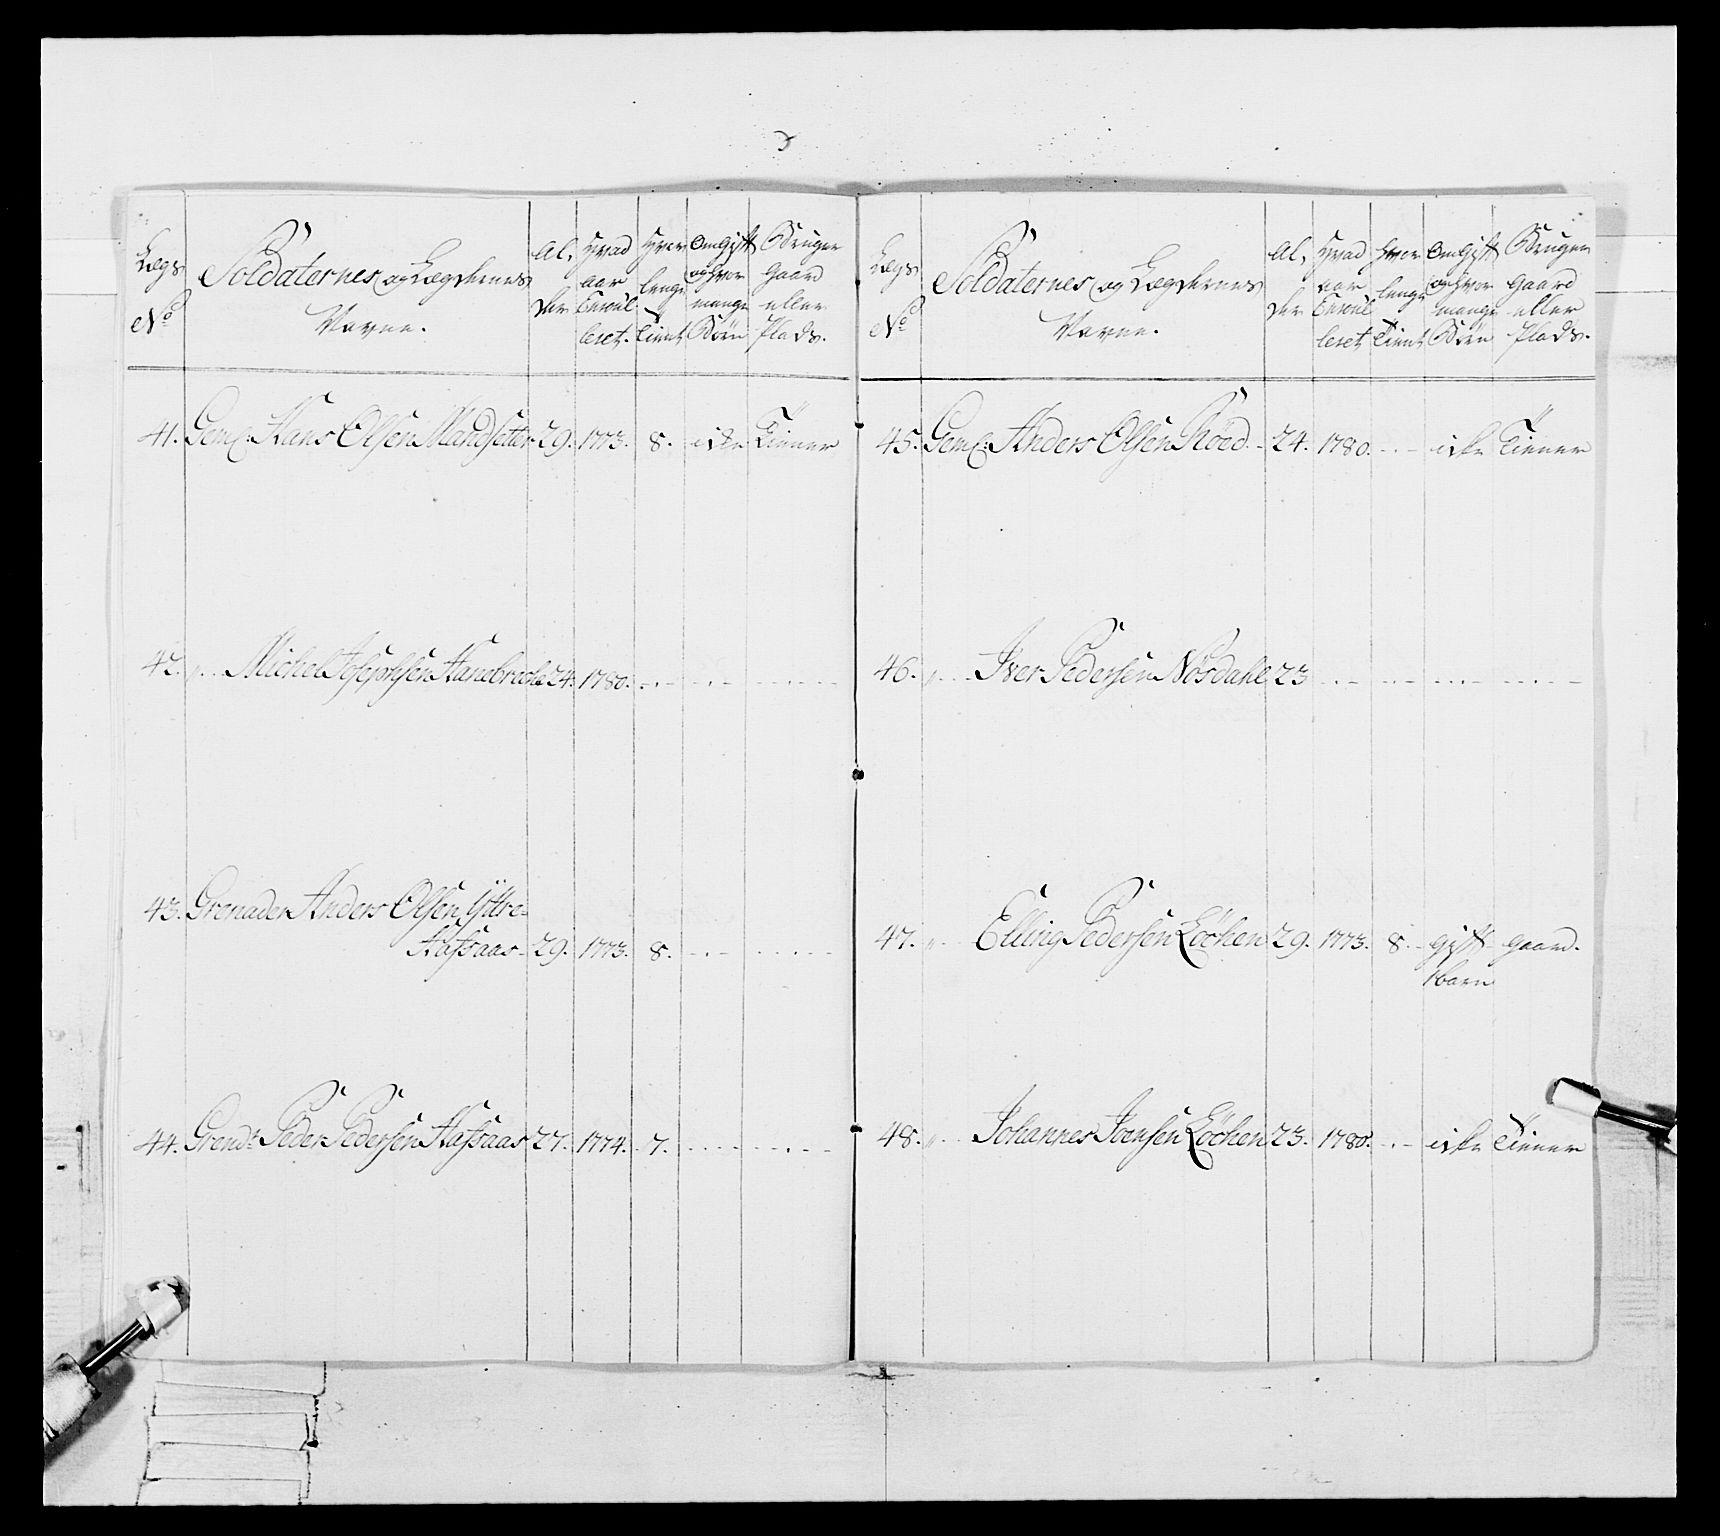 Lægs No | Soldaternes og Lægdernes Navne. | Al, der | Hvad aar Enroul leret. | Hver lenge Tient | Om Gift og hvor mange Børn | Bruger Gaard eller Plads.
41. Gem: Hans Olsen Mandseter 29. 1773. 8. ikke Tiener
42. „ Michel Josephsen 24. 1780.
43. Grenader Anders Olsen Yttre-
Aafsaas - 29. 1773. 8.
44. Grend: Peder Pedersen Aafsaas 27. 1774. 7.
Lægs No | Soldaternes og Lægdernes Navne. | Al, der | Hvad aar Enroul leret | Hver lenge Tient | Om Gift og hvor mange Børn | Bruger Gaard eller Plads.
45. Gem: Anders Olsen Röed - 24. 1780. ikke Tiener
46. „ Iver Pedersen Nösdahl 23
47. „ Elling Pedersen Löchen 29. 1773. 8. gift gaard.
1 barn
48. „ Johannes Joensen Löchen 23. 1780. ikke Tiener